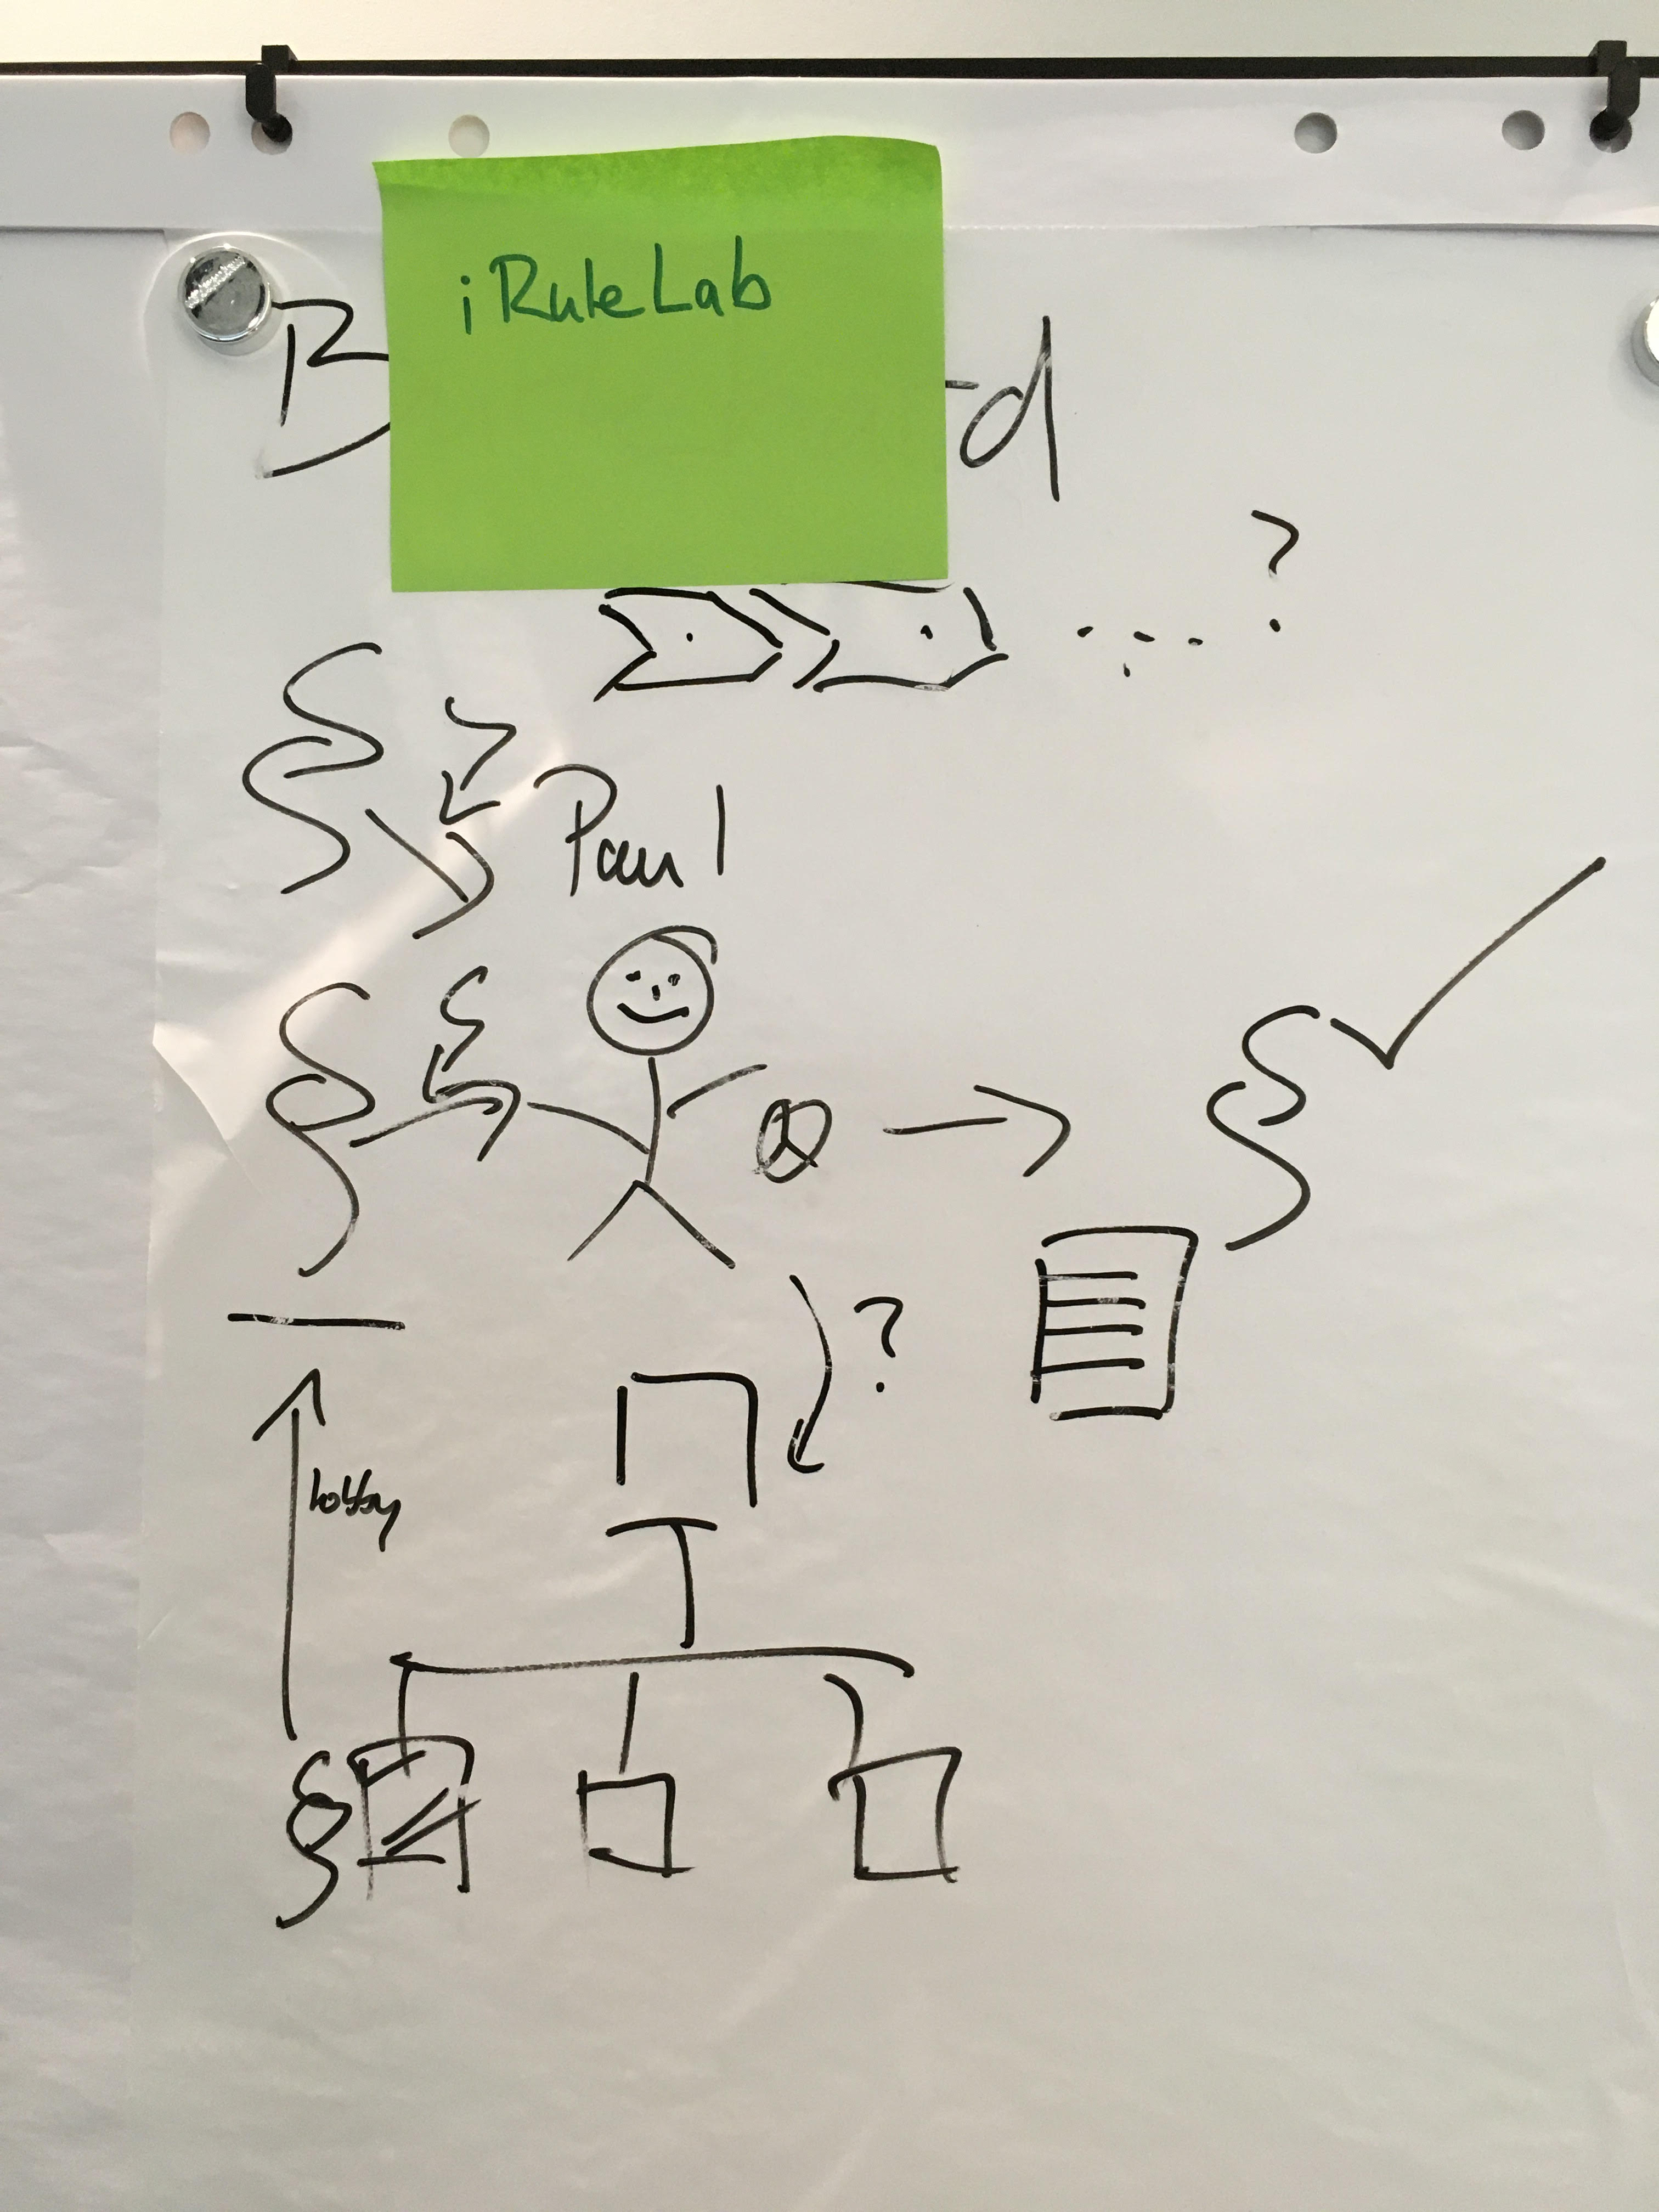 iRuleLab
?
§
Paul
§
§ ✓
?
lobby
§